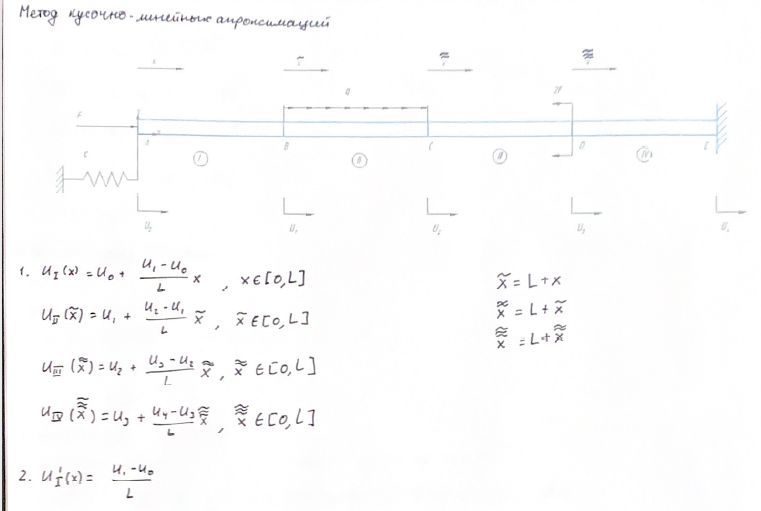 Метод кусочно-линейных апроксимаций
x x̃ x̃̃ x̃̃̃
q 2F
F
c
A x B C D E
I II III IV
U₀ U₁ U₂ U₃ U₄
1. U_I(x) = U₀ + (U₁ - U₀)/L x , x ∈ [0, L]
U_II(x̃) = U₁ + (U₂ - U₁)/L x̃ , x̃ ∈ [0, L]
U_III(x̃̃) = U₂ + (U₃ - U₂)/L x̃̃ , x̃̃ ∈ [0, L]
U_IV(x̃̃̃) = U₃ + (U₄ - U₃)/L x̃̃̃ , x̃̃̃ ∈ [0, L]
x̃ = L + x
x̃̃ = L + x̃
x̃̃̃ = L + x̃̃
2. U'_I(x) = (U₁ - U₀)/L